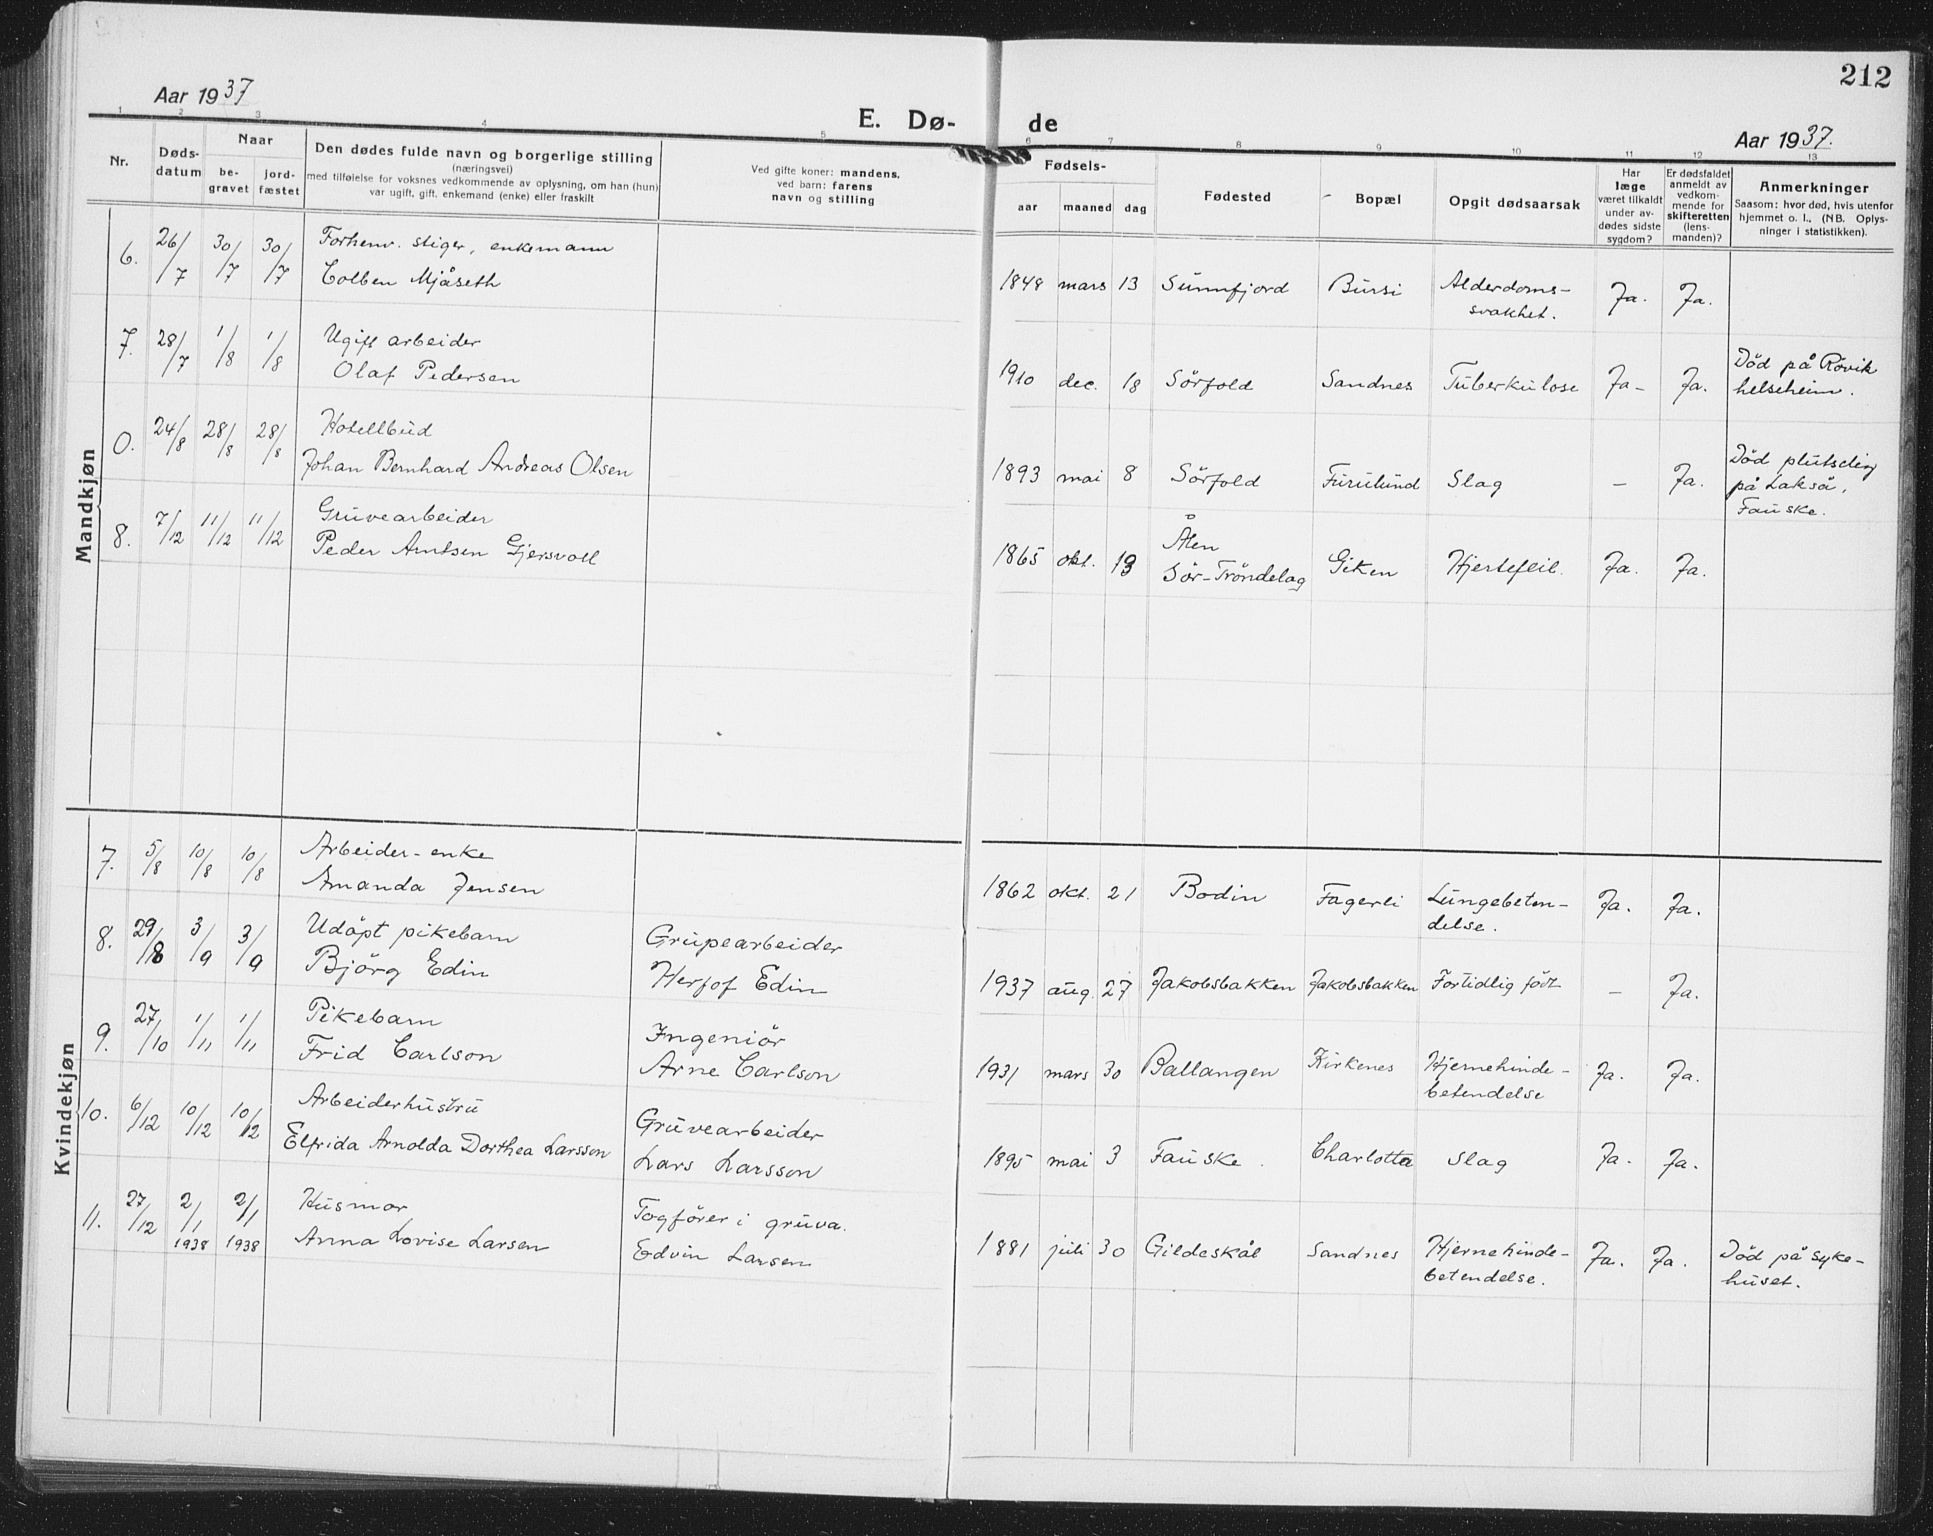 212
Aar 1937
E. Dø- de
Aar 1937.
1 2 3 4 5 6 7 8 9 10 11 12 13
Nr.
Døds-
datum
Naar
be-
gravet
jord-
fæstet
Den dødes fulde navn og borgerlige stilling
(næringsvei)
med tilføielse for voksnes vedkommende av oplysning, om han (hun)
var ugift, gift, enkemand (enke) eller fraskilt
Ved gifte koner: mandens,
ved barn: farens
navn og stilling
Fødsels-
aar maaned dag
Fødested
Bopæl
Opgit dødsaarsak
Har
læge
været tilkaldt
under av-
dødes sidste
sygdom?
Er dødsfaldet
anmeldt av
vedkom-
mende for
skifteretten
(lens-
manden)?
Anmerkninger
Saasom: hvor død, hvis utenfor
hjemmet o. l., (NB. Oplys-
ninger i statistikken).
Mandkjøn
6. 26/7 30/7 30/7 Forhenv. stiger, enkemann
Colben Mjåseth
1848 mars 13 Sunnfjord Bursi Alderdoms-
svakhet. Ja. Ja.
7. 28/7 1/8 1/8 Ugift arbeider
Olaf Pedersen
1910 dec. 18 Sörfold Sandnes Tuberkulose Ja- Ja. Död på Rövik
helseheim.
0. 24/8 28/8 28/8 Hotellbud
Johan Bernhard Andreas Olsen
1893 mai 8 Sörfold Furulund Slag – Ja. Död plutselig
på Lakså,
Fauske.
8. 7/12 11/12 11/12 Gruvearbeider
Peder Arntsen Gjersvoll
1865 okt. 13 Ålen
Sör-Tröndelag Giken Hjertefeil. Ja. Ja.
Kvindekjøn
7. 5/8 10/8 10/8 Arbeider-enke
Amanda Jensen
1862 okt. 21 Bodin Fagerli Lungebeten-
delse. Ja. Ja.
8. 29/8 3/9 3/9 Udöpt pikebarn
Björg Edin
Grupearbeider
Herjof Edin
1937 aug. 27 Jakobsbakken Jakobsbakken Fortidlig födt – Ja.
9. 27/10 1/11 1/11 Pikebarn
Frid Carlson
Ingeniör
Arne Carlson
1931 mars 30 Ballangen Kirkenes Hjernehinde-
betendelse Ja. Ja.
10. 6/12 10/12 10/12 Arbeiderhustru
Elfrida Arnolda Dorthea Larsson
Gruvearbeider
Lars Larsson
1895 mai 3 Fauske. Charlotta Slag Ja. Ja.
11. 27/12 2/1 1938 2/1 1938 Husmor
Anna Lovise Larsen
Togförer i gruva.
Edvin Larsen
1881 juli 30 Gildeskål Sandnes Hjernehinde-
betendelse. Ja. Ja. Död på syke-
huset.